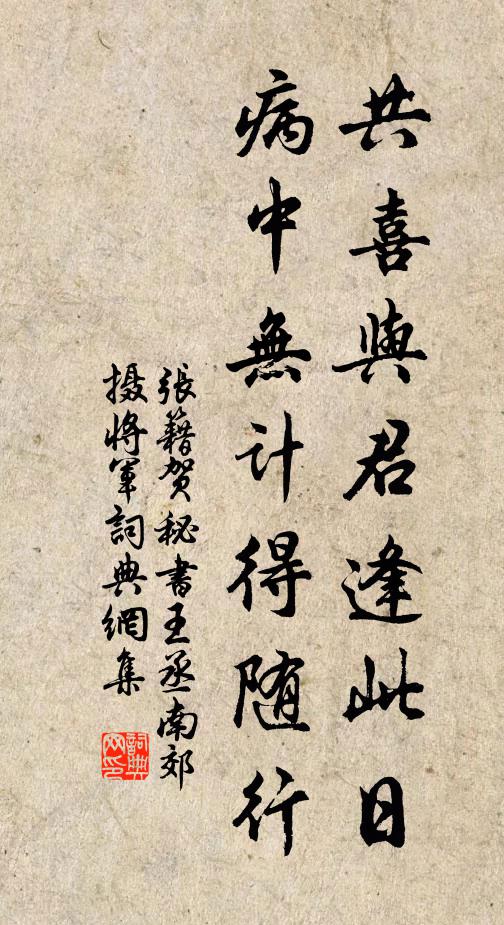 共喜與君逢此日
病中無計得随行
張籍賀秘書王丞南郊
摄將軍詞典網集
詞典
网印